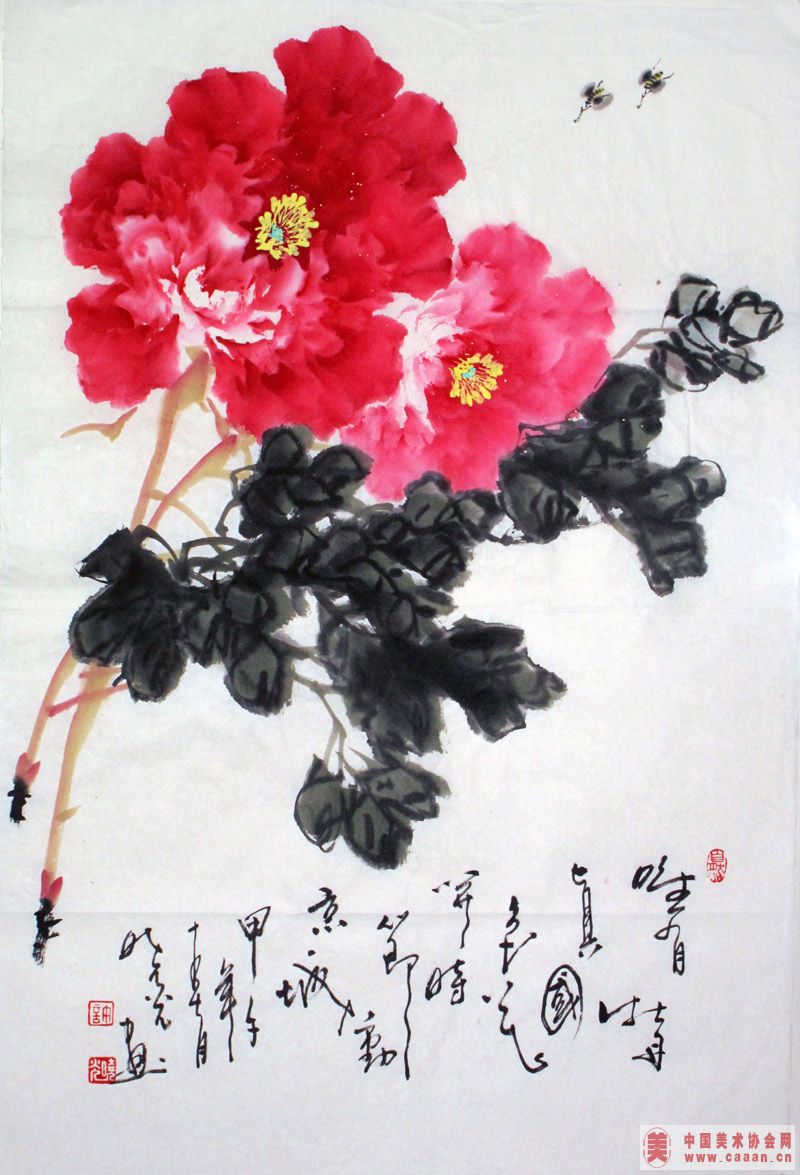 唯有牡丹
真國
色花
開時
節動
京城
甲午年
月
曉光画
美
中国美术协会网
www.caaan.cn